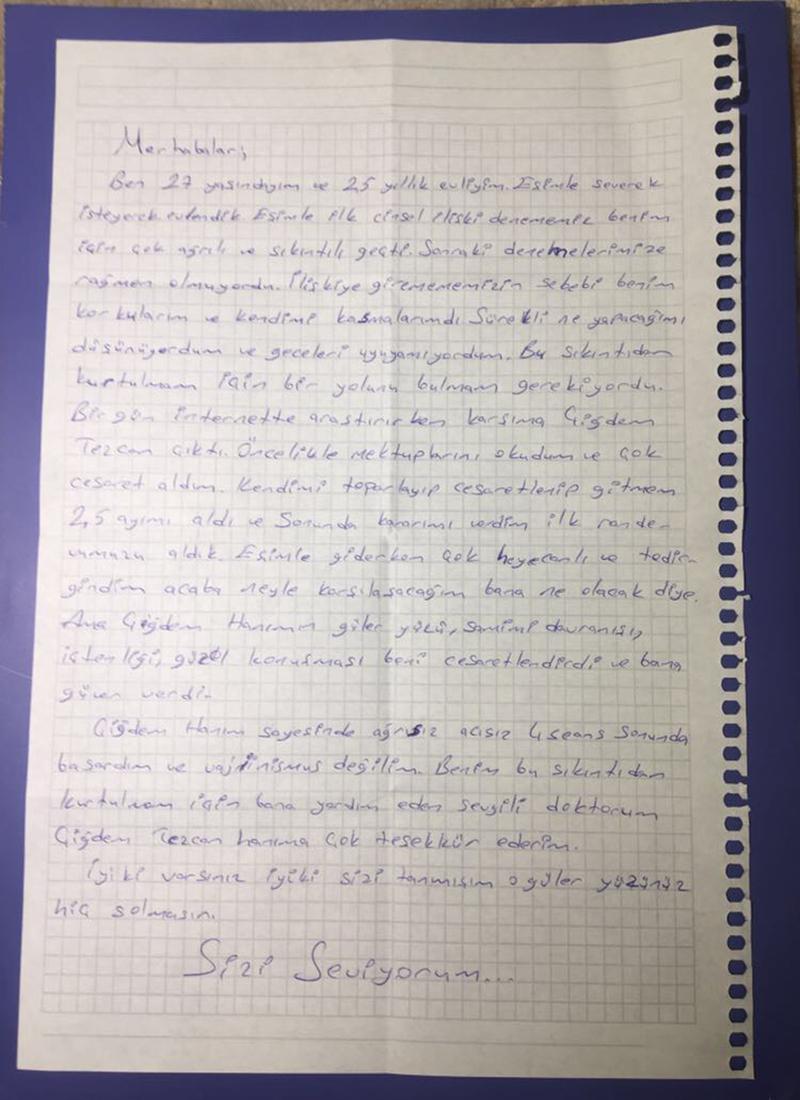 Merhabalar;
Ben 27 yaşındayım ve 2,5 yıllık evliyim. Eşimle severek
isteyerek evlendik Eşimle ilk cinsel ilişki denememiz benim
için çok ağrılı ve sıkıntılı geçti. Sonraki denemelerimize
rağmen olmuyordu. İlişkiye giremememizin sebebi benim
korkularım ve kendimi kasmalarımdı Sürekli ne yapacağımı
düşünüyordum ve geceleri uyuyamıyordum. Bu sıkıntıdan
kurtulmam için bir yolunu bulmam gerekiyordu.
Bir gün internette araştırırken karşıma Çiğdem
Tezcan çıktı. Öncelikle mektuplarını okudum ve çok
cesaret aldım. Kendimi toparlayıp cesaretlenip gitmem
2,5 ayımı aldı ve Sonunda kararımı verdim ilk rande-
vumuzu aldık. Eşimle giderken çok heyecanlı ve tedir-
gindim acaba neyle karşılaşacağım bana ne olacak diye.
Ama Çiğdem Hanımın güler yüzü, samimi davranışı,
içtenliği, güzel konuşması beni cesaretlendirdi ve bana
güven verdi.
Çiğdem Hanım sayesinde ağrısız acısız 4 seans sonunda
başardım ve vajinismus değilim. Benim bu sıkıntıdan
kurtulmam için bana yardım eden sevgili doktorum
Çiğdem Tezcan hanıma çok teşekkür ederim.
İyiki varsınız iyiki sizi tanımışım o güler yüzünüz
hiç solmasın.
Sizi Seviyorum...